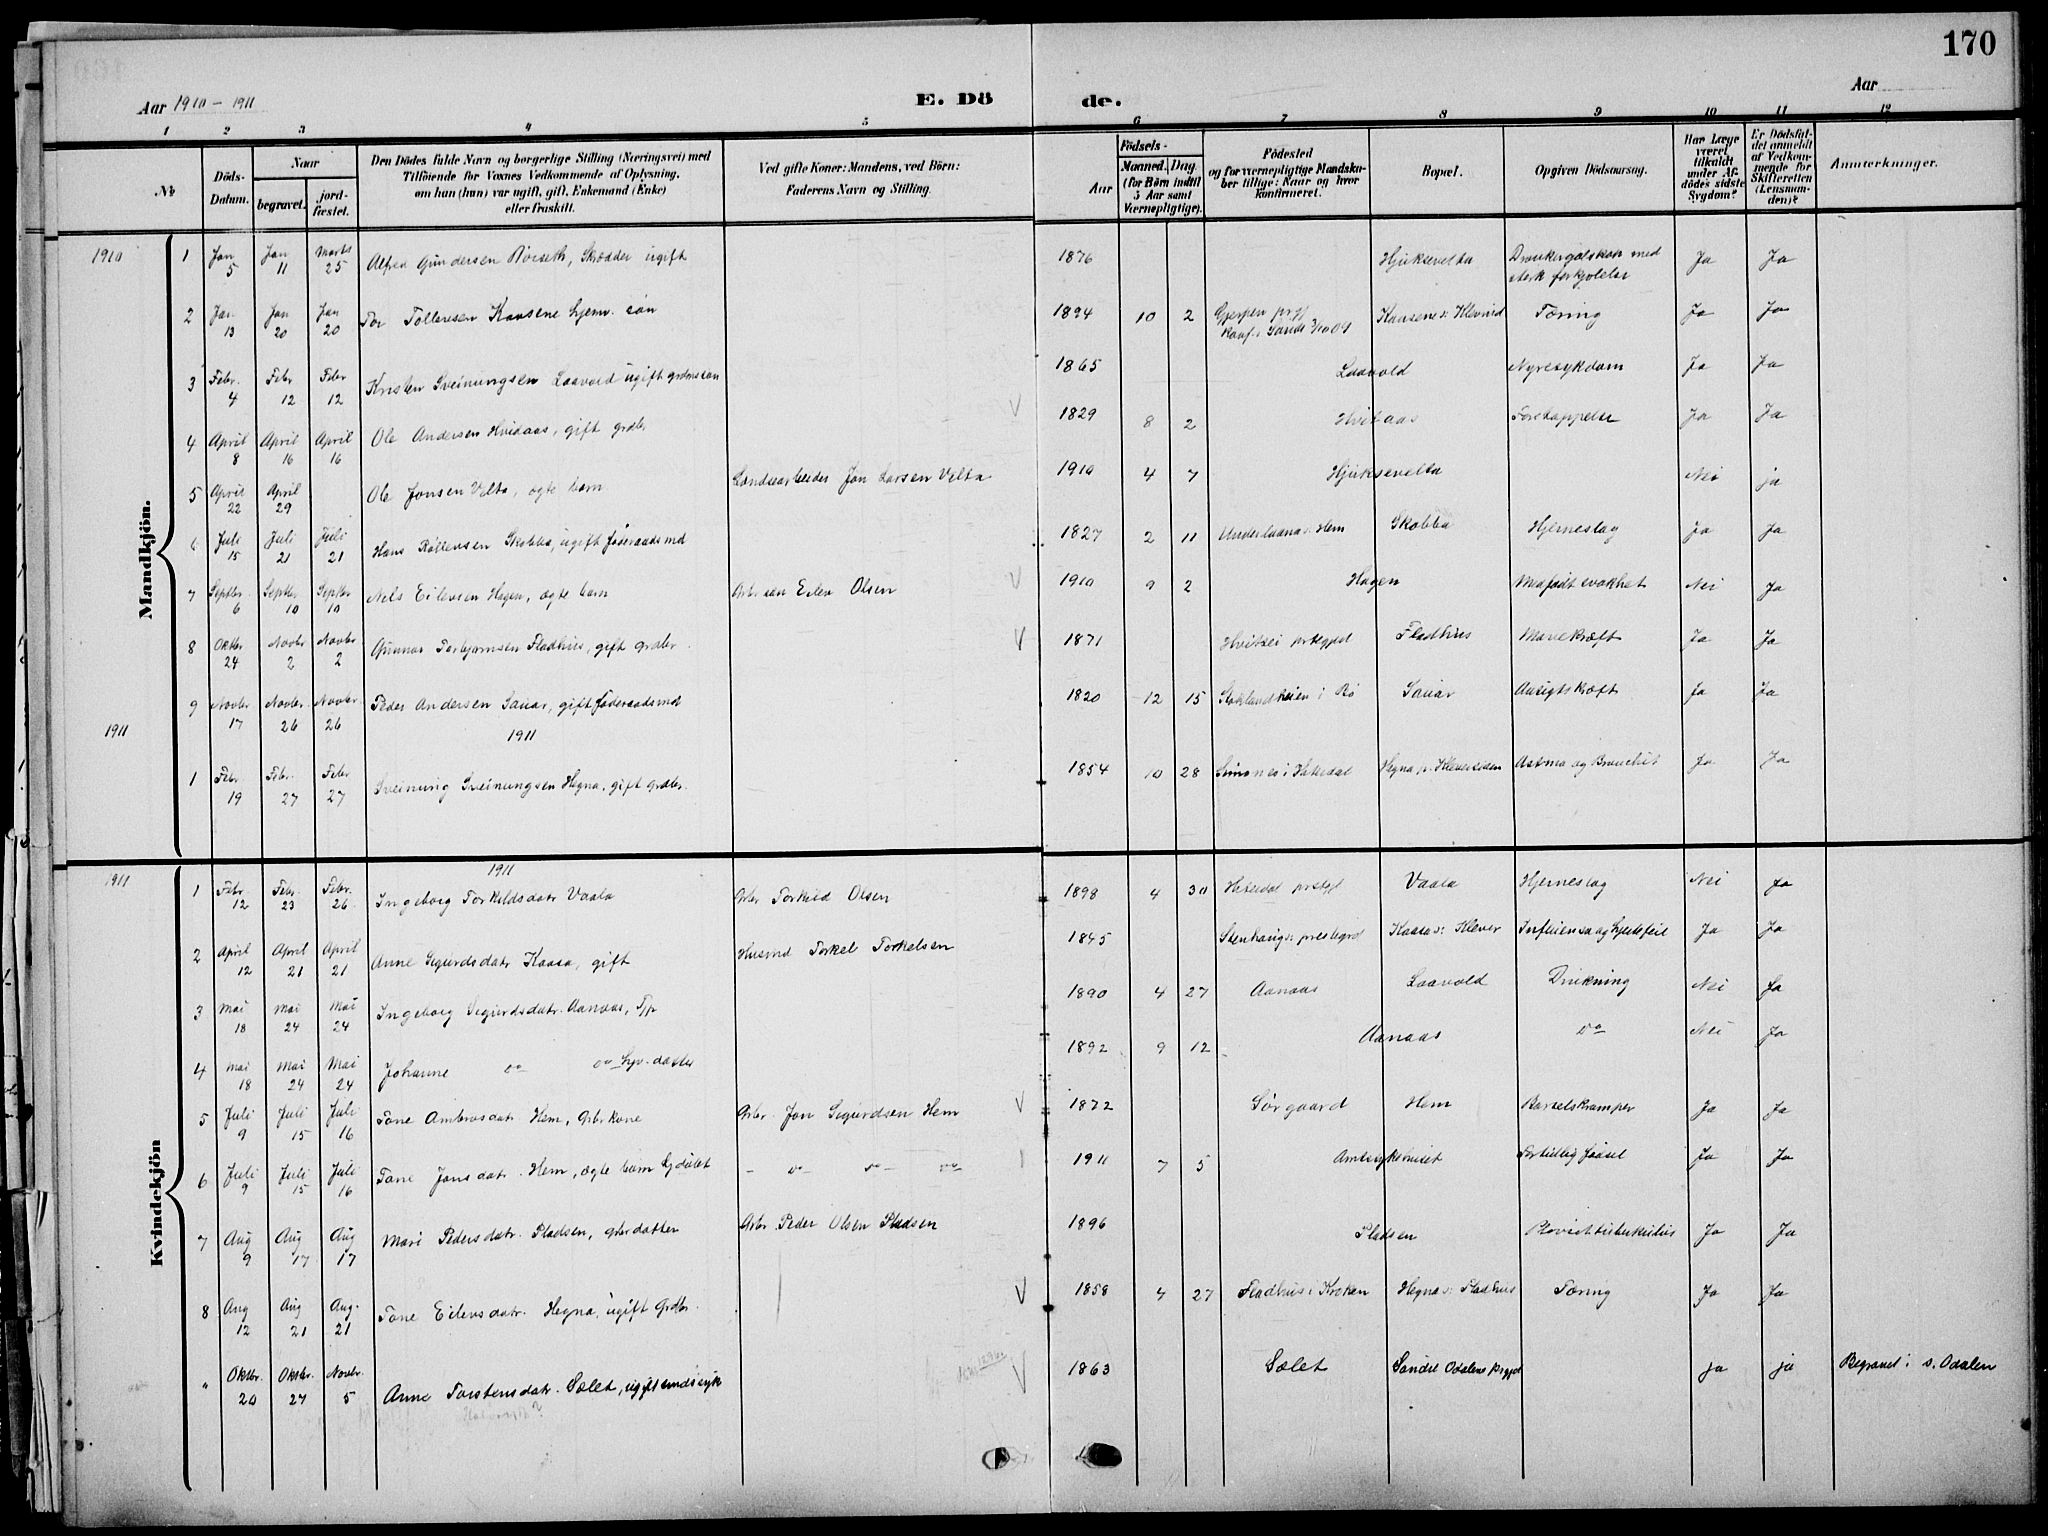 170
Aar 1910 - 1911
E. Dö de.
Aar
1 2 3 4 5 6 7 8 9 10 11 12
№
Döds-Datum.
Naar
begravet.
jord-fæstet.
Den Dödes fulde Navn og borgerlige Stilling (Næringsvei) med
Tilföiende for Voxnes Vedkommende af Oplysning,
om han (hun) var ugift, gift, Enkemand (Enke)
eller fraskilt.
Ved gifte Koner: Mandens, ved Börn:
Faderens Navn og Stilling.
Födsels-
Aar
Maaned. Dag.
(for Börn indtil
5 Aar samt
Værnepligtige).
Födested
og for værnepligtige Mandska-
ber tillige: Naar og hvor
konfirmeret.
Bopæl.
Opgiven Dödsaarsag.
Har Læge
været
tilkaldt
under Af-
dödes sidste
Sygdom?
Er Dödsfal-
det anmeldt
af Vedkom-
mende for
Skifteretten
(Lensman-
den)?
Anmærkninger.
Mandkjön.
1910
1 Jan 5 Jan 11 Marts 25 Alfred Gundersen Roiseth, Skrædder ugift 1876 Hjuksevelta Drankergalskap med sterk forkjølelse Ja Ja
2 Jan 13 Jan 20 Jan 20 Tor Tollevsen Kaasene hjemv. søn 1894 10 2 Gjerpen prgj Konf. i Sande 2/10 09 Kaasene s: Klevind Tæring Ja Ja
3 Febr. 4 Febr 12 Febr 12 Kristen Sveinungsen Laavold ugift grdmssøn 1865 Laavold Nyresykdom Ja Ja
4 April 8 April 16 April 16 Ole Andersen Hvidaas, gift grdbr 1829 8 2 Hvitaas Forstoppelse Ja Ja
5 April 22 April 29 Ole Jonsen Velta, ægte barn Landsearbeider Jon Larsen Velta 1910 4 7 Hjuksevelta Nei ja
6 Juli 15 Juli 21 Juli 21 Hans Rollevsen Skobba, ugift føderaadsmd 1827 2 11 Underlaana s: Hem Skobba Hjerneslag Ja Ja
7 Septbr. 6 Septbr 10 Septbr 10 Nils Eilevsen Hagen, ægte barn Arbr søn Eilev Olsen 1910 9 2 Hagen Medfødt svakhet Nei Ja
8 Oktbr 24 Novbr 2 Novbr 2 Gunnar Torbjørnsen Fladhus, gift grdbr. 1871 Hvitsei prstegjd Fladhus Mavekræft Ja Ja
9 Novbr 17 Novbr. 26 Novbr 26 Peder Andersen Sauar, gift føderaadsmd 1820 12 15 Stoklandheien i Bø Sauar Ansigtskræft Ja Ja
1911
1911
1 Febr. 19 Febr. 27 Febr 27 Sveinung Sveinungsen Hegna, gift grdbr. 1854 10 28 Simones i Hiterdal Hegna Astma og Bronchit Ja Ja
Kvindekjön
1911
1911
1 Febr. 12 Febr. 23 Febr. 26 Ingeborg Torkildsdatr Vaala Arbr Torkild Olsen 1898 4 30 Hiterdal prstgj Vaala Hjerneslag Nei Ja
2 April 12 April 21 April 21 Anne Sigurdsdatr Kaasa, gift Husmd Torkel Torkelsen 1845 Stenhaug s: prestegrd Kaasa s: Klever Influensa og hjertefeil Ja Ja
3 Mai 18 Mai 24 Mai 24 Ingeborg Sigurdsdatr. Aanaas, Tjp 1890 4 27 Aanaas Laavold Drukning Nei Ja
4 Mai 18 Mai 24 Mai 24 Johanne do do hjv. datter 1892 9 12 Aanaas do Nei Ja
5 Juli 9 Juli 15 Juli 16 Tone Ambrosdatr Hem, Arbr kone Arbr. Jon Sigurdsen Hem 1872 Sørgaard Hem Barselskramper Ja Ja
6 Juli 9 Juli 15 Juli 16 Tone Jonsdatr. Hem, ægte barn hjdøbt - do do - do 1911 7 5 Amtsykehuset Fortidlig fødsel Ja Ja
7 Aug 9 Aug 17 Aug 17 Mari Pedersdatr. Pladsen, arbr datter Arbr Peder Olsen Pladsen 1896 Pladsen Ja Ja
8 Aug 12 Aug 21 Aug. 21 Tone Eilevsdatr. Hegna, ugift Grdbr. 1858 4 27 Fladhus i Kroken Hegna s: Fladhus Tæring Ja Ja
" Oktbr. 20 Oktbr. 27 Novbr. 5 Anne Torstensdatr. Sælet, ugift sindssyk 1863 Sælet Søndre Odalens prgjd ja ja Begravet i s. Odalen